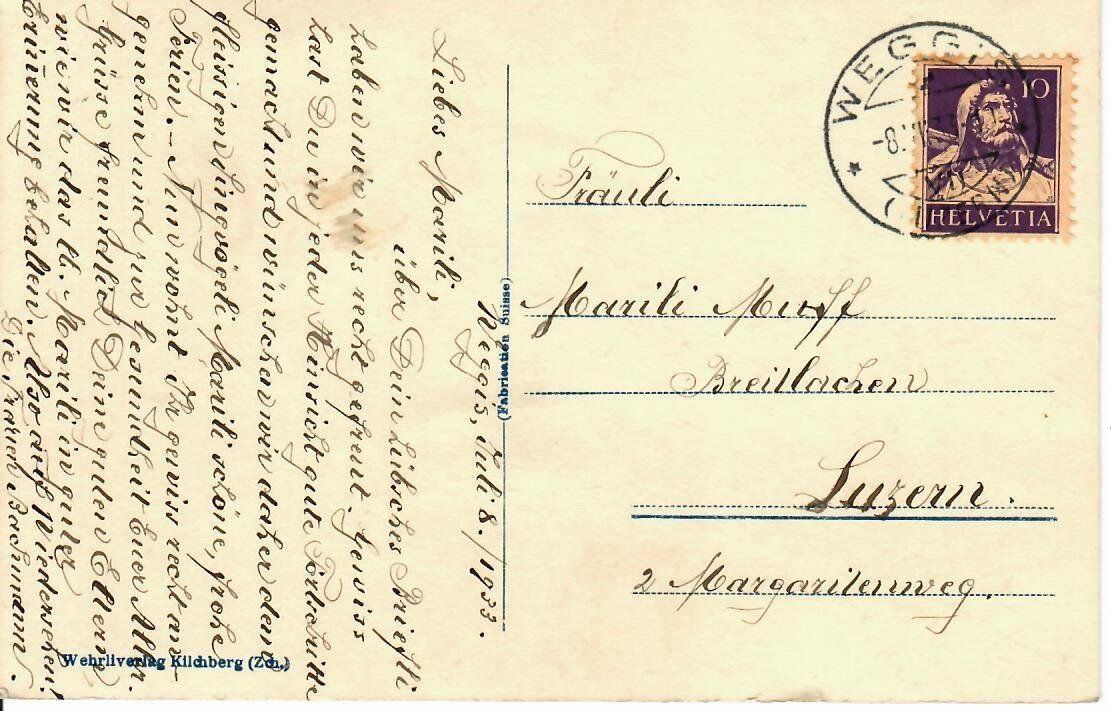 Weggis, Juli 8./1933.
Liebes Marili,
über Dein hübsches Briefli
haben wir uns recht gefreut. Gewiss
hast Du in jeder Hinsicht gute Fortschritte
gemacht und wünschen wir daher dem
fleissigen Singvögeli Marili schöne, frohe
Ferien. – Nun wohnt Ihr gewiss recht an-
genehm und zur Gesundheit Euer Aller.
Grüsse freundlich Deine guten Eltern
wie wir das lb. Marili in guter
Erinnerung behalten. Also auf Wiedersehen!
Die Frauen Bachmann.
Wehrliverlag Kilchberg (Zch.)
(Fabrication Suisse)
WEGGIS
(LUZERN)
10
HELVETIA
Fräuli
Marili Murff
Breitlachen
Luzern.
2 Margaritenweg.